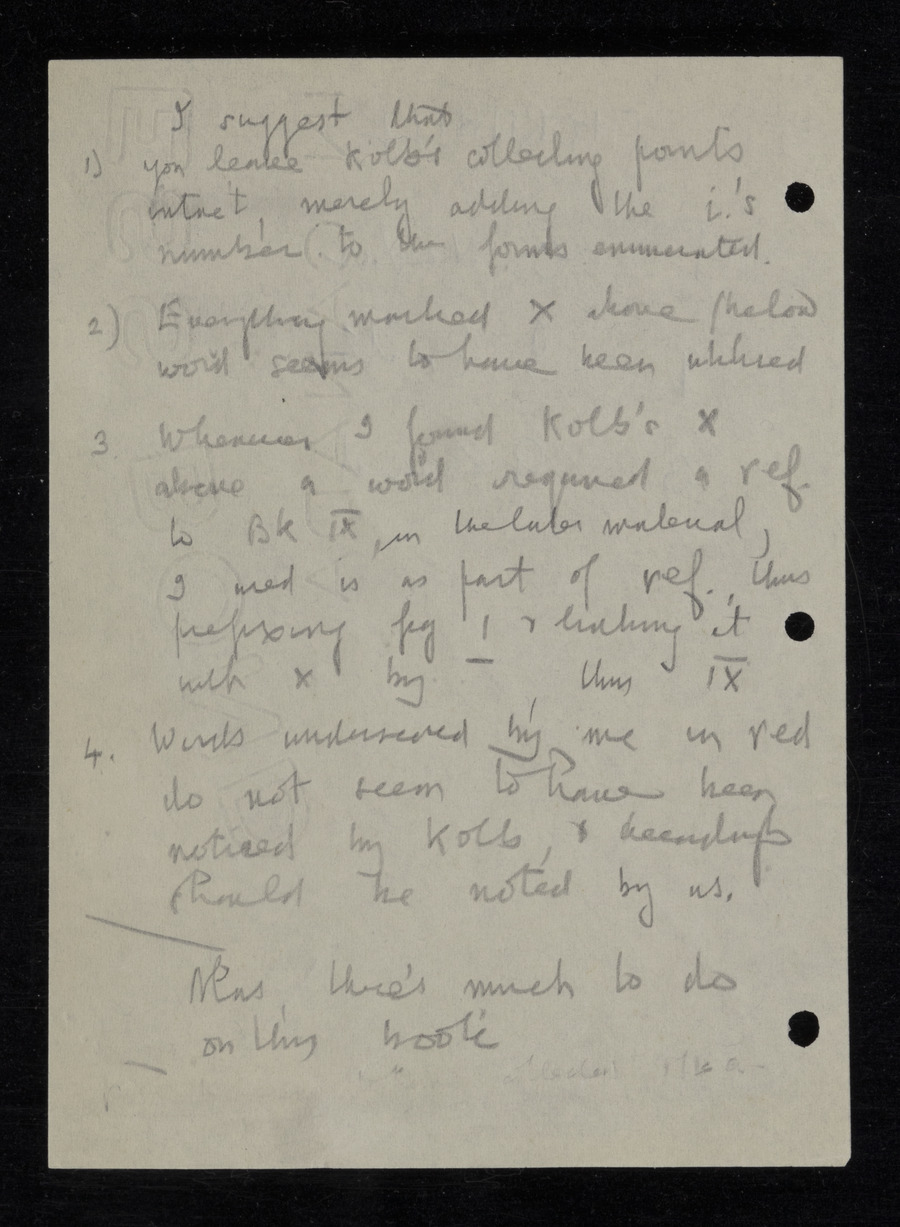 I suggest that
1) you leave Kolb's collecting points
intact, merely adding the i.'s
number to the forms enumerated.
2) Everything marked X above / below
word seems to have been utilised
3. Whenever I found Kolb's X
above a word required a ref.
to Bk IX, in the later material,
I used is as part of ref., thus
prefixing fig I & linking it
with X by —, thus IX
4. Words underscored by me in red
do not seem to have been
noticed by Kolb, &
should be noted by us.
Alas, there's much to do
on this book